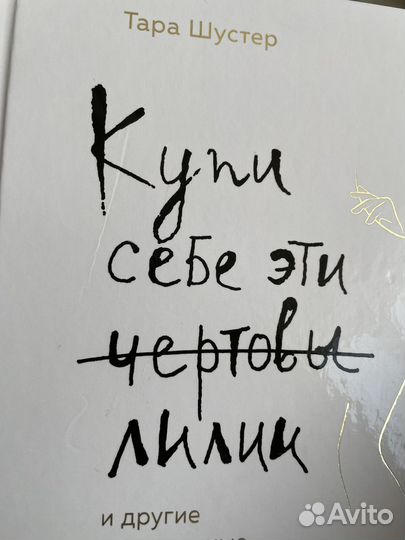 Тара Шустер
Купи
себе эти
чертовы
лилии
и другие
Avito